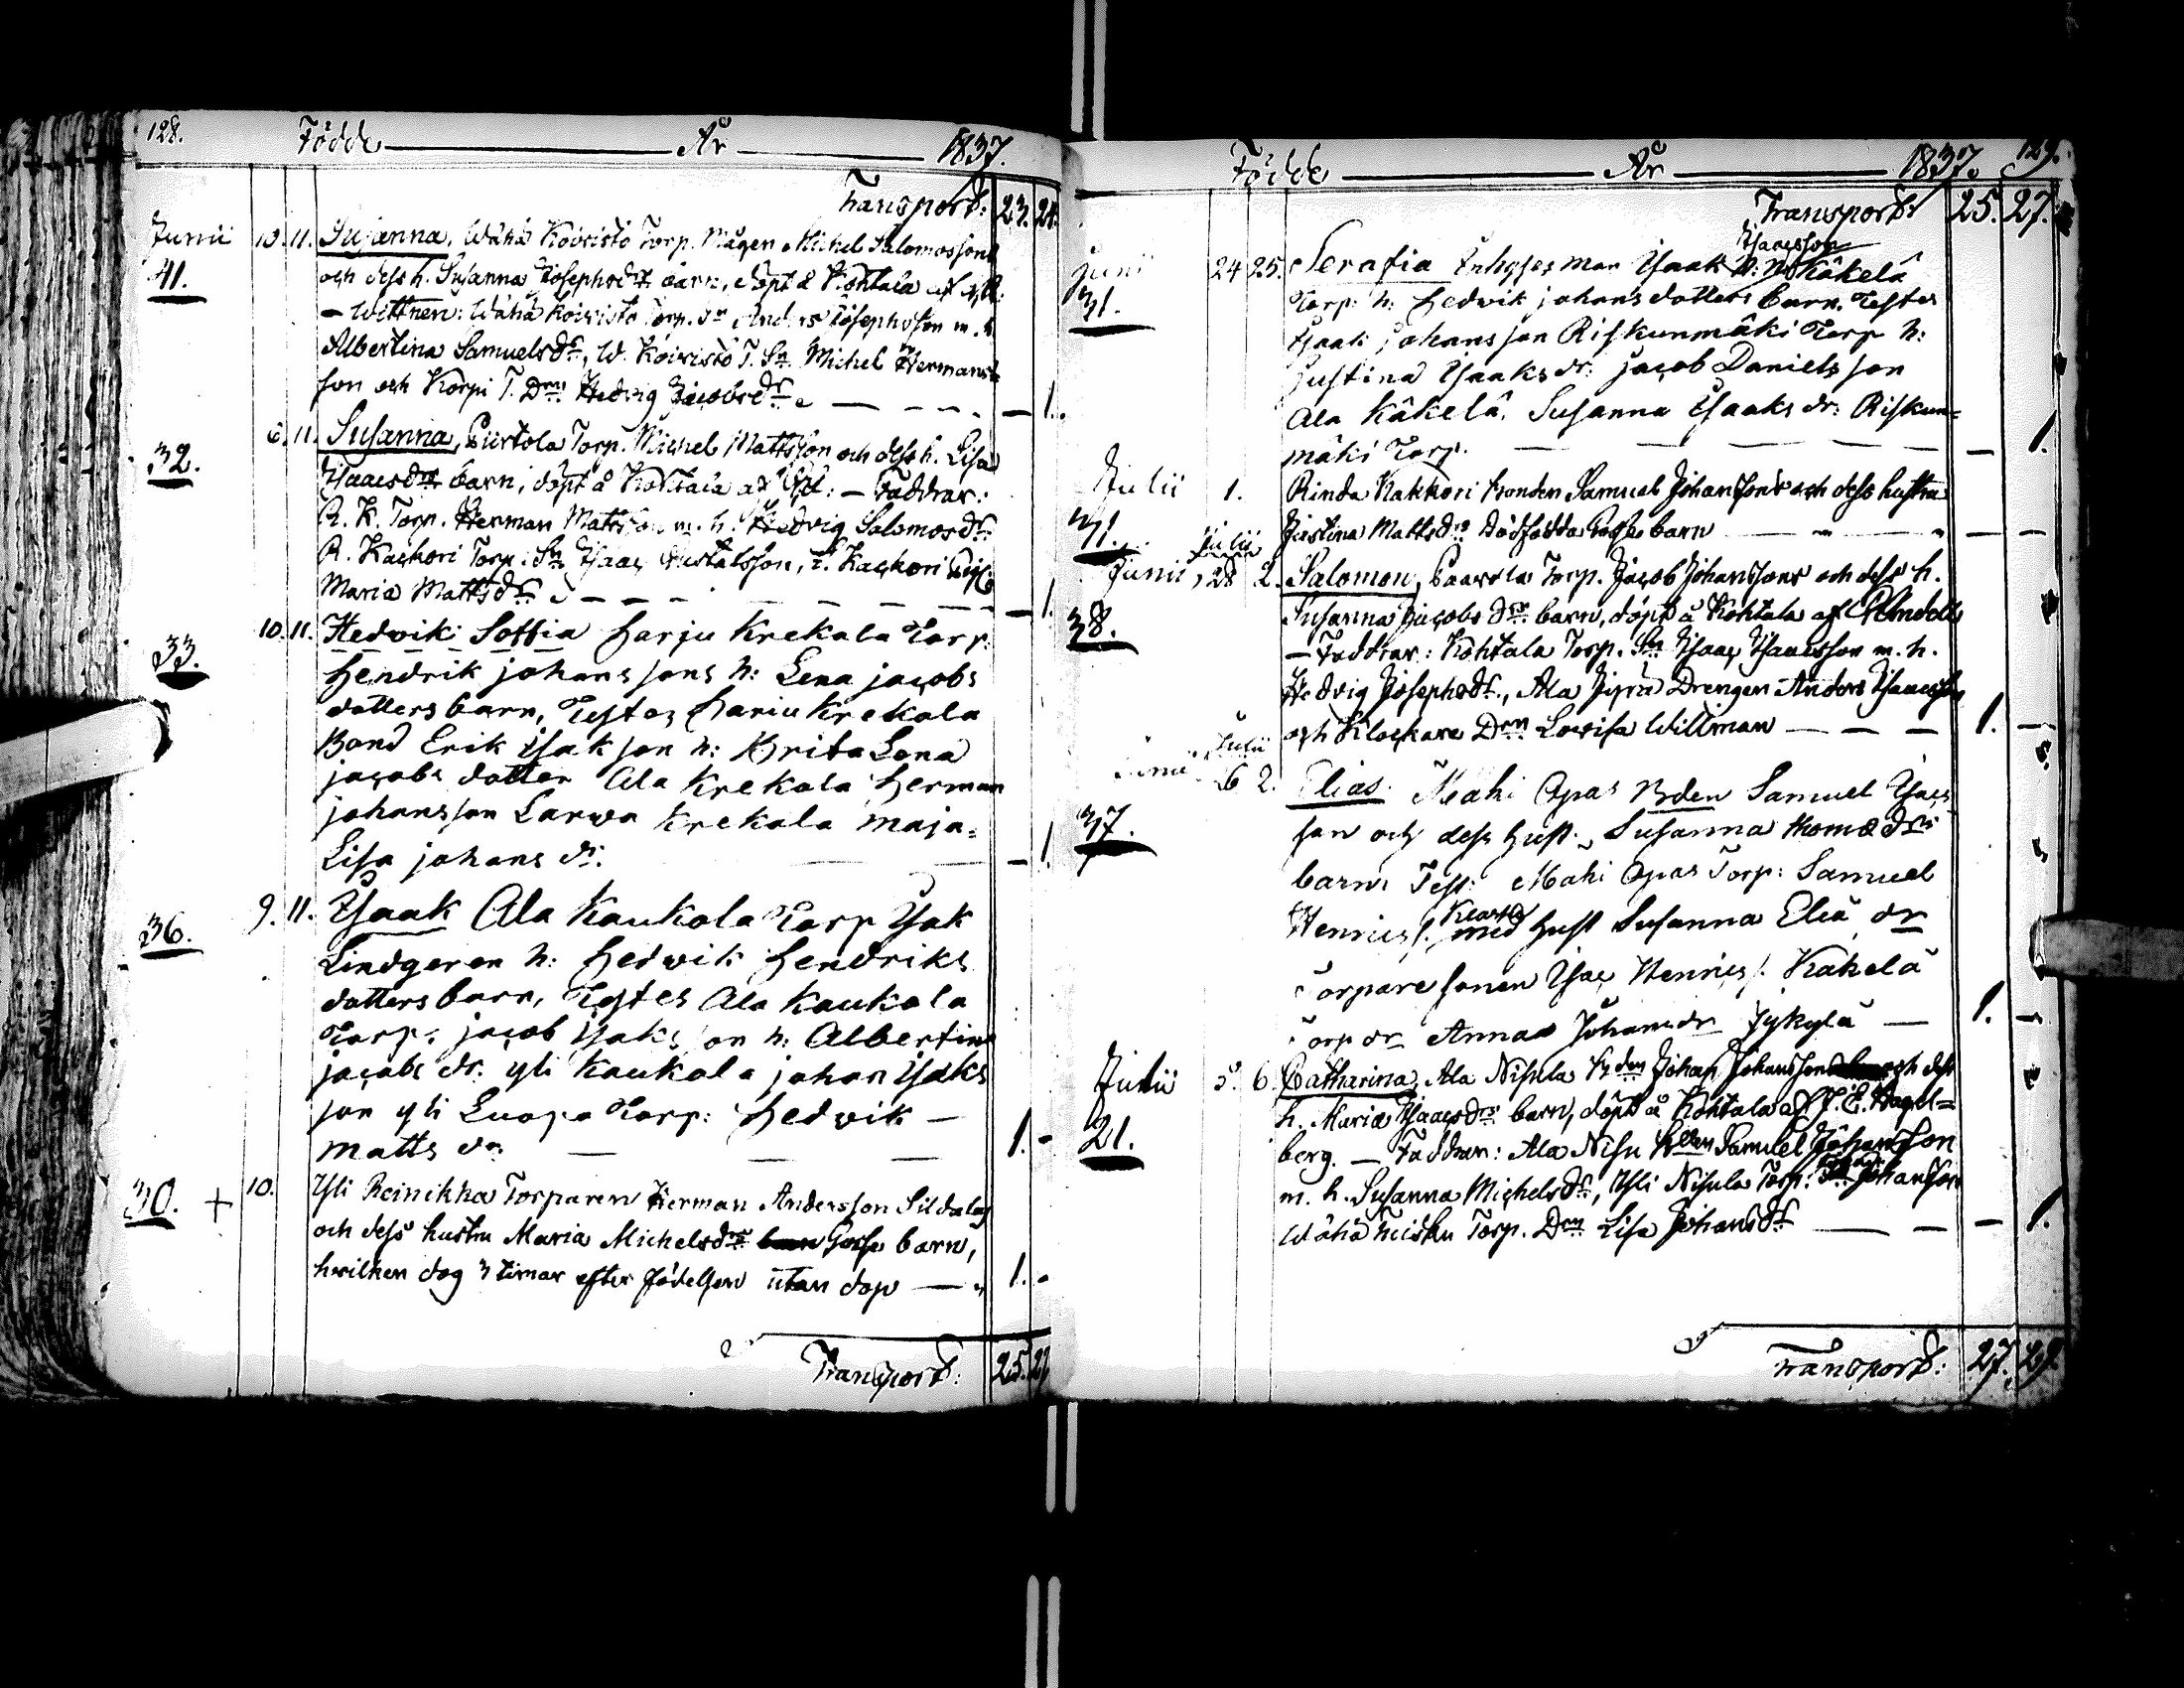 128. Födde År 1837.
Transport: 23. 24.
Junii 10. 11. Susanna, Wähä Koivisto Torp. Mågen Michel Salomossons
41. och dess h. Susanna Josephsdrs barn, döpt å Kohtala af
– Wittnen: Wähä Koivisto Torp. Sn Anders Josephsson m. h.
Albertina Samuelsdr, W. Koivisto T. Sn Michel Hermans-
son och Korpi T. Drn Hedvig Jacobsdr – – – – 1.
32. 6. 11. Susanna, Piirtola Torp. Michel Mattsson och dess h. Lisa
Isaacsdrs barn, döpt å Kohtala af – Faddrar:
R. K. Torp. Herman Mattsson m. h. Hedvig Salomosdr
R. Kackori Torp. Sn Isaac Gustafsson, R. Kackori Pig.
Maria Mattsdr – – – – 1.
33. 10. 11. Hedvik Soffia Harju Krekala Torp:
Hendrik johanssons h: Lena jacobs
dotters barn, Testes Hariu Krekola
Bond Erik isak son h: Brita Lena
jacobs dotter Ala Krekola Herman
johansson Larwa Krekala maja-
Lisa johans dr. – – 1.
36. 9. 11. Isaak Ala Kaukola Torp Isak
Lindgeren h: Hedwik Hendriks
dotters barn, Testes Ala Kaukola
Torp: jacob isaks son h: Albertina
jacobs dr. yli Kaukola johan isaks
son yli Luopa Torp: Hedwik –
matts dr. – – – 1. -
30. + 10. Yli Reinikka Torparen Herman Andersson Sildalas
och dess hustru Maria Michelsdrs Gosse barn,
hvilken dog 3 timar efter födelsen utan dop – 1. -
Transport: 25. 27
Födde År 1837. 129.
Transport: 25. 27.
Isaacsson
Junii 24 25. Serafia Inhyses man Isaak Käkelä
31. Torp: h: Hedwik johans dotters barn. Testes
Isaak johansson Riskunmäki Torp h:
justina Isaaks dr: jacob Daniels son
Ala Käkelä, Susanna Isaaks dr: Riskun=
mäki Torp. – – – – – 1.
Julii 1. Rinda Kakkori bonden Samuel Johanssons och dess hustru
Justina Mattsdrs Dödfödda Gosse barn – – – –
Julii
Junii, 28 2. Salomon, Paavola Torp. Jacob Johanssons och dess h.
38. Susanna Jacobsdrs barn, döpt å Kohtala af
– Faddrar: Kohtala Torp. Sn Isaac Isaacsson m. h.
Hedvig Josephsdr., Ala Drengen Anders Isaacsson
och Klockare Drn Lovisa Willman – – – 1. –
Julii
Junii 26 2. Elias. Mahi Opas Bden Samuel Isacs
37. son och dess hust. Susanna Thomæ drs
barn: Test: Mahi Opas Torp: Samuel
Henrics f. med hust Susanna Eliä dr
Torpare sonen Isac Henrics f. Käkelä
Torp dr Anna Johansdr Jykylä – 1. –
Julii 5. 6. Catharina, Ala Nisula Bden Johan Johansson och dess
21. h. Maria Isaacsdrs barn, döpt å Kohtala af J. E. Hagel=
berg. – Faddrar: Ala Nisu Bden Samuel Johansson
m. h. Susanna Michelsdr, Yli Nisula Torp. Johansson
Wähä Torp. Drn Lisa Johansdr – – – 1.
Transport: 27. 29.